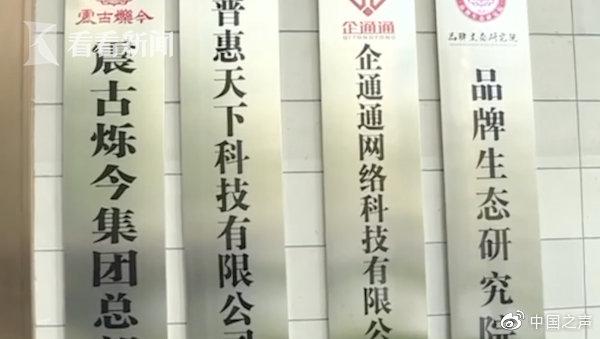 震古爍今
震古烁今集团总部
普惠天下科技有限公司
企通通
QITONGTONG
企通通网络科技有限公
品牌生态研究院
品牌生态研究院
看看新闻
中国之声